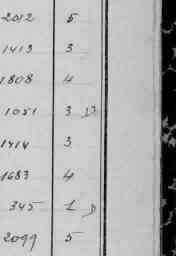 2012 5
1413 3
1808 4
1051 3 D
1414 3
1683 4
345 1 D
2099 5